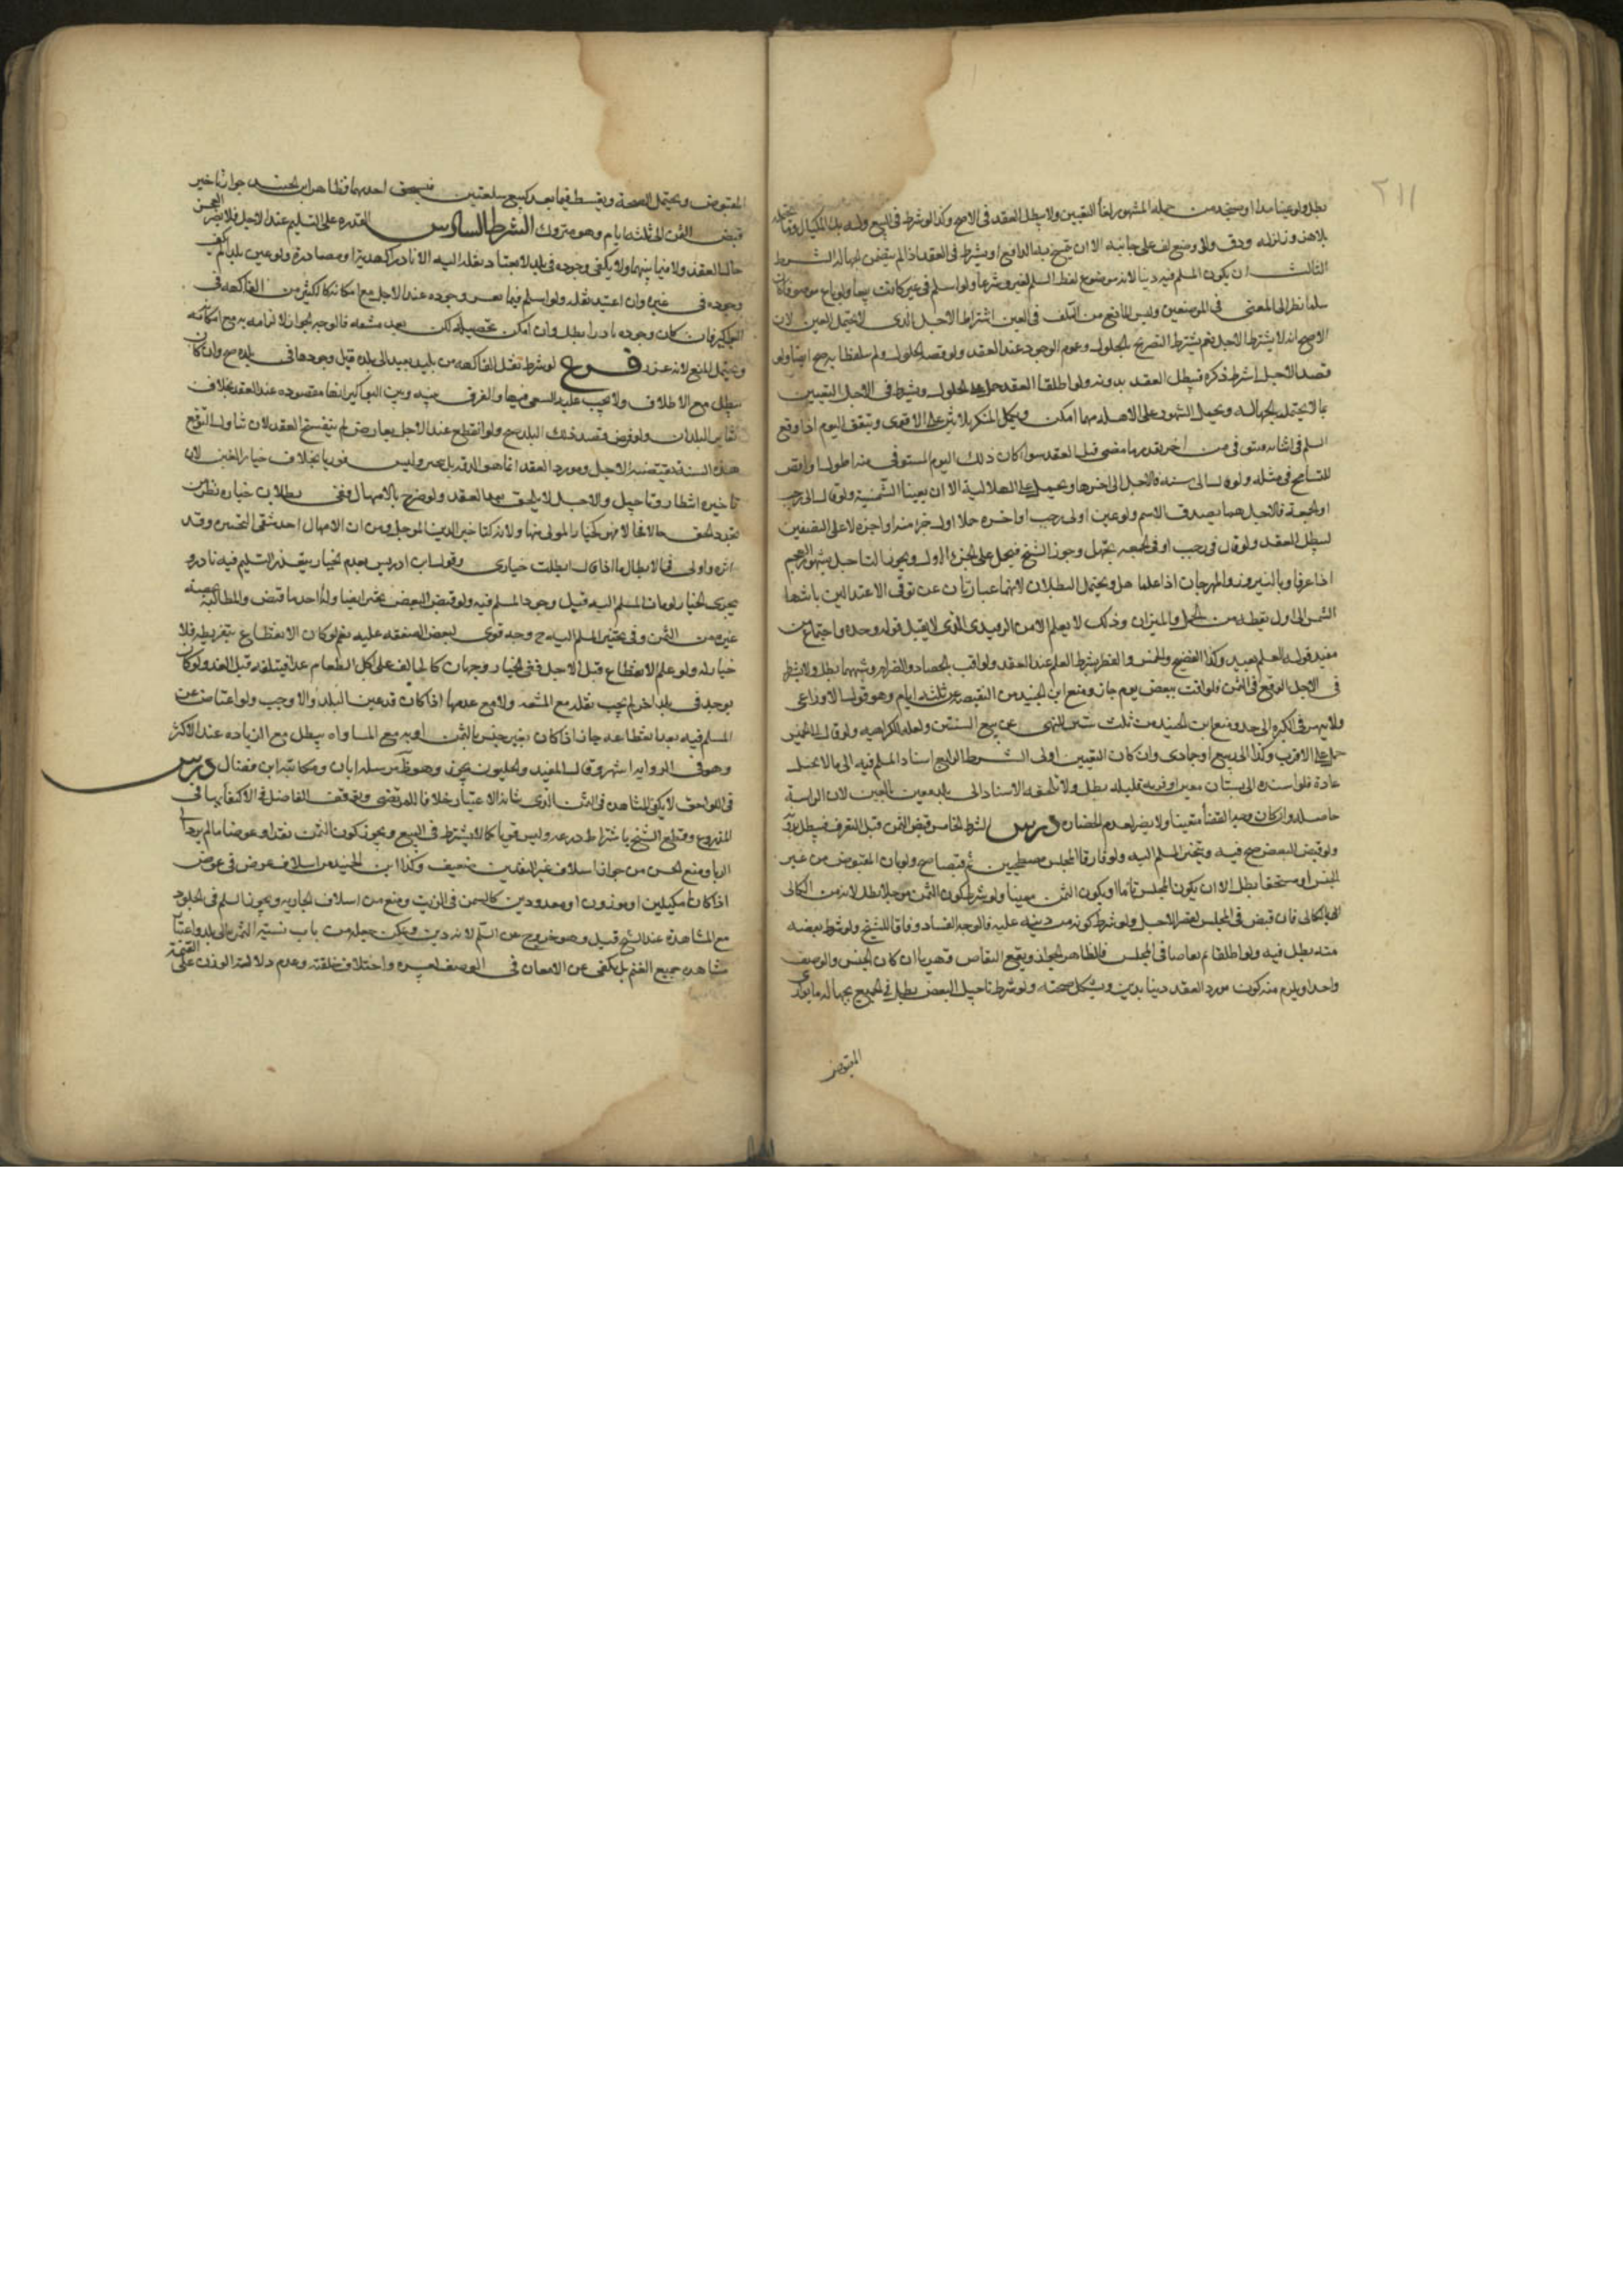 ٢١١
بطل ولو عينا مدا او سنجة من جملة المشهور لغا التعيين ولا يبطل العقد في الاصح وكذا لو شرط في البيع وله ملأ المكيال وما يحتمله
بلا هز وزلزلة ودق ولا وضع كف على جانبه الا ان تسمح بها الدافع او يشرط في العقد اذا لم يتضمن الجهالة الشرط
الثالث ان يكون المسلم فيه دينا لانه موضوع لفظ السلم لغة وشرعا ولو اسلم في عين كانت بيعا ولو باع موصوفا كان
سلما نظرا الى المعنى في الموضعين وليس المانع من السلف في العين اشتراط الاجل الذي لا يحتمله العين لان
الاصح انه لا يشترط الاجل نعم يشترط التصريح بالحلول وعموم الوجود عند العقد ولو قصد الحلول ولم يتلفظا به صح ايضا ولو
قصد الاجل اشترط ذكره فيبطل العقد بدونه ولو اطلقا العقد حمل على الحلول ويشترط في الاجل التعيين
بما لا يحتمله الجهالة ويحمل الشهور على الاهلة مهما امكن ويكمل المنكر ثلاثين على الاقوى ويتفق اليوم اذا وقع
السلم في اثنائه مستوفى من اخر بقدر ما مضى قبل العقد سواء كان ذلك اليوم المستوفى منه اطول او اقصر
للتسامح في مثله ولو قال الى سنة فالاجل الى اخرها ويحمل على الهلالية الا ان يعينا الشمسية ولو قال الى رجب
او الجمعة فالاجل هما يصدق الاسم ولو عين اولى رجب او اخره حملا اول جزء منه او اجزه لا على النصفين
ليبطل العقد ولو قال في رجب او في الجمعة بجهل وجوز الشيخ فيحمل على الجزء الاول ويجوز التاجيل بشهور العجم
اذا عرفا وبالنيروز والمهرجان اذا علما هل ويحتمل البطلان لانهما عبارتان عن توفي الاعتدالين بانتهاء
الشمس الى اول نقطة من الحمل والميزان وذلك لا يعلم الا من الرصدي الذي لا يقبل قوله وحده واجتماع من
مفيد قولهم العلم بعيد وكذا الفصح والخمس والفطر بشرط العلم عند العقد ولو اقت بالحصاد والصرام وشبههما بطل ولا يشترط
في الاجل الوقع في الثمن فلو اقت ببعض يوم جاز ومنع ابن الجنيد من النقيصة عن ثلثة ايام وهو قول الاوزاعي
ولا ينهى في الكثرة الى حد ومنع ابن الجنيد من ثلث سنين للنهي عن بيع السنتين ولعله للكراهية ولو قال الى الخميس
حمل على الاقرب وكذا الى ربيع او جمادى وان كان التعيين اولى الشرط الرابع اسناد المسلم فيه الى ما لا يختل
عادة فلو اسنده الى بستان معين او قرية قليلة بطل ولا يكفيه الاسناد الى بلد معين للجبن لان الراسبة
حاصلة وان كان وجه القضاء متعينا ولا يضر لعدم الحضان درس الشرط الخامس قبض الثمن قبل التفرق فيبطل بدونه
ولو قبض البعض صح فيه ويتخير المسلم اليه ولو فارقا المجلس مصطحبين ثم تقابضا صح ولو بان المقبوض من غير
الجنس او مستحقا بطل الا ان يكون المجلس قائما او يكون الثمن معينا ولو شرط كون الثمن موجلا بطل لانه من الكالي
بالكالي فان قبض في المجلس لقصر الاجل ولو شرط كونه من دينه عليه فالوجه الفساد وفاقا للشيخ ولو شرط بعضه
منه بطل فيه ولو اطلقا ثم تقاصا في المجلس فالظاهر الجواز ويقع التقاص قهريا ان كان الجنس والوصف
واحدا ويلزم منه كون مورد العقد دينا بدين ويشكل صحته ولو شرط تاجيل البعض بطل في الجميع بجهالة ما يوازي
المقبوض
المقبوض ويحتمل الصحة ويقسط فيما بعد كبيع سلعتين فيستحق احدهما فظاهر ابن الجنيد جواز تاخير
قبض الثمن الى ثلثة ايام وهو متروك الشرط السادس القدرة على التسليم عند الاجل فلا يضر العجز
حالة العقد ولا فيما بينهما ولا يكفي وجوده في بلد لا يعتاد نقله اليه الا نادرا كهدية او مصادرة ولو عين بلدا لم يكف
وجوده في غيره وان اعتيد نقله ولو اسلم فيما يعسر وجوده عند الاجل مع امكانه كالكثير من الفاكهة في
البواكير فان كان وجوده نادرا بطل وان امكن تحصيله لكن بعد مشقة فالوجه الجواز لالزامه به مع امكانه
ويحتمل المنع لانه غرر فرع لو شرط نقل الفاكهة من بلد بعيد الى بلده قبل وجودها في بلده صح وان كان
يبطل مع الاطلاق ولا يجب عليه السعي فيها والفرق بينه وبين البواكير انها مقصودة عند العقد بخلاف
تقابر البلدان ولو فرض قصد ذلك البلد صح ولو انقطع عند الاجل بعارض لم ينفسخ العقد لان تناول التوقع
هذه السنة يقتضيه الاجل ومورد العقد انما هو الذمة بل صبر وليس فوريا بخلاف خيار الغبن لان
تاخيره انتظار وتاجيل والاجل لا يلحق بعد العقد ولو صرح بالامهال ففي بطلان خياره نظر من
تجدد الحق حالا فحالا فهو كخيار المولى منها ولانه كتاخير الدين الموجل ومن ان الامهال احد شقي التخيير وقد
اثره واولى في الابطال ما اذا قال ابطلت خياري وقول ابن ادريس بعدم الخيار بتعذر التسليم فيه نادر و
يجزي الخيار لو مات المسلم اليه قبل وجود المسلم فيه ولو قبض البعض تخير ايضا وله اخذ ما قبض والمطالبة بحصة
غيره من الثمن وفي تخيير المسلم اليه ح وجه قوي لتبعض الصفقة عليه نعم لو كان الانقطاع بتفريطه فلا
خيار له ولو علم الانقطاع قبل الاجل ففي الخيار وجهان كالحالف على اكل الطعام غدا فيتلفه قبل الغد ولو كان
يوجد في بلد اخر لم يجب نقله مع المشقة ولا مع عدمها اذا كان قد عين البلد والا وجب ولو اعتاض عن
المسلم فيه بعد انقطاعه جاز اذا كان بغير جنس الثمن او به مع المساواة ويبطل مع الزيادة عند الاكثر
وهو في الرواية اشهر وقال المفيد والحليون يجوز وهو ظاهر مرسلة ابان ومكاتبة ابن فضال درس
في اللواحق لا يكفي المشاهدة في الثمن الذي شانه الاعتبار خلافا للمرتضى وتوقف الفاضل في الاكتفاء بها في
المذروع وقطع الشيخ باشتراط ذرعه وليس قويا كما لا يشترط في البيع ويجوز كون الثمن نقدا وعوضا ما لم يؤد الى
الربا ومنع الحسن من جواز اسلاف غير النقدين ضعيف وكذا ابن الجنيد من اسلاف عوض في عوض
اذا كانا مكيلين او موزونين او معدودين كالسمن في الزيت ومنع من اسلاف الجارية ويجوز السلم في الجلود
مع المشاهدة عند الشيخ قيل وهو خروج عن السلم لانه دين ويمكن جعله من باب نسبة الثمن الى بلد واعتبار
مشاهدة جميع الغنم بل يكفي عن الامعان في الوصف لعسره واختلاف خلقته وعدم دلالة الوزن على القيمة